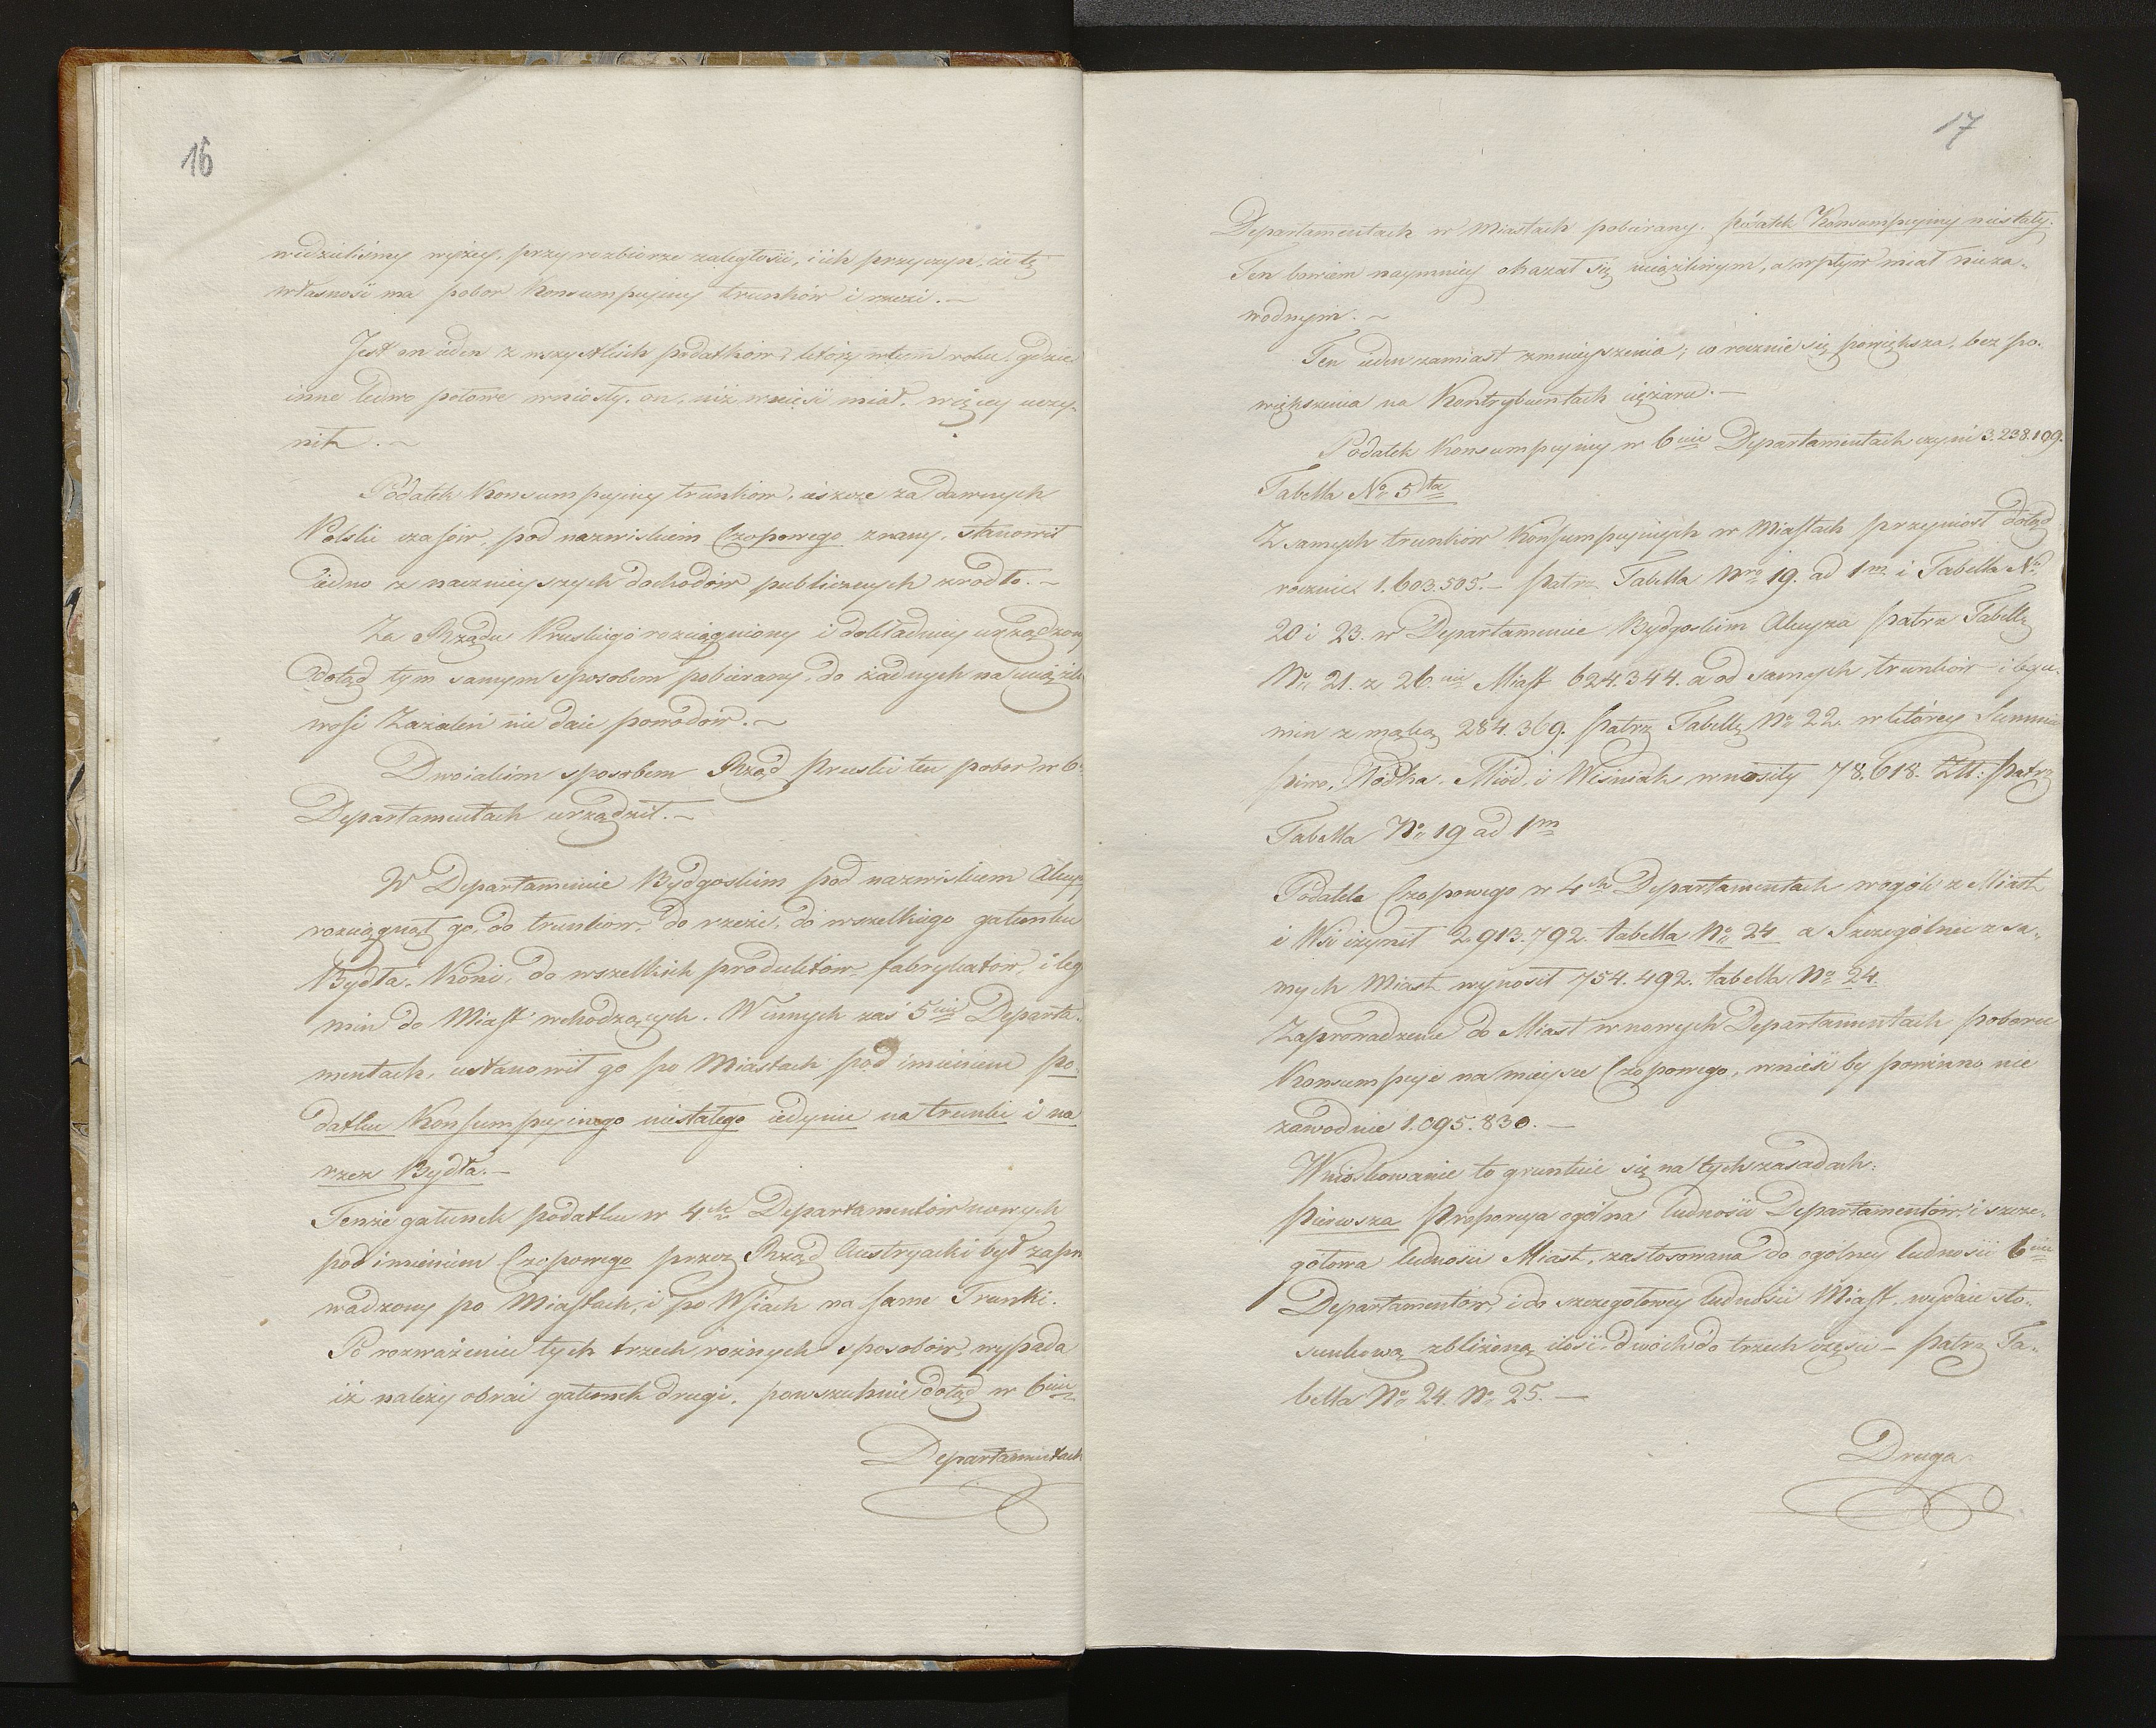 16
widzieliśmy wyżey, przy rozbiorze zaległości, i ich przyczyn, że tę
własność ma pobor Konsumpcyiney trunków i rzezi. —
Jest on ieden z wszystkich podatków, który w tem roku, gdzie
inne ledwo połowe wniosły, on, niż wnieść miał, więcey uczy-
nił. —
Podatek Konsumpcyiney trunków, ieszcze za dawnych
Polski czasów, pod nazwiskiem Czopowego znany, stanowił
iedno z naczneyszych dochodów publicznych zrodło. —
Za Rządu Pruskiego rozciągniony i dokładniey urządzony
Dotąd tym samym sposobem pobierany, do żadnych na uciążli
wość Zażaleń nie daie powodów. —
Dwoiakim sposobem Rząd Pruski ten pobor w 6.
Departamentach urządził. —
W Departamencie Bydgoskim pod nazwiskiem Akcyz
rozciągnął go, do trunków, do rzezi, do wszelkiego gatunku
Bydła, Koni, do wszelkich produktów, fabrykatów, i leg
min do Miast wchodzących. W innych zaś 5ciu Departa-
mentach, ustanowił go po Miastach pod imieniem po
datku Konsumpcyinego niestałego iedynie na trunki i na
rzez Bydła. —
Tenże gatunek podatku w 4ch Departamentów nowych
pod imieniem Czopowego przez Rząd Austryacki był zapro
wadzony po Miastach, i po Wsiach na same Trunki.
Po rozważeniu tych trzech rożnych sposobów, wypada
iż należy obrać gatunek drugi, powszechnie dotąd w 6ciu
Departamentach
17
Departamentach w Miastach pobierany, podatek Konsumpcyiny niestały.
Ten bowiem naymniey okazał się uciążliwym, a wpływ miał nieza-
wodnym. —
Ten ieden zamiast zmnieyszenia, co rocznie się powiększa, bez po-
większenia na Kontrybuentach ciężaru. —
Podatek Konsumpcyiney w 6ciu Departamentach czyni 3.238.109.
Tabella No 5ta
Z samych trunków Konsumpcyinych w Miastach przynosił dotąd
rocznie 1.603.505. — patrz Tabella Nro 19. ad 1m i Tabella No
20 i 23. w Departamencie Bydgoskim Akcyza patrz Tabellę
No 21. z 26.ciu Miast 624.344. a od samych trunków i legu-
min z mąką 284.369. patrz Tabellę No 22. w którey Summie
piwo, Wodka, Miód, i Wiśniak wnosiły 78.618. Złł: patrz
Tabella No 19 ad 1m
Podatek Czopowego w 4ch Departamentach w ogóle z Miast
i Wsi czynił 2.913.792. tabella No 24 a szczególnie z sa-
mych Miast wynosił 754.492. tabella No 24.
Zaprowadzenie do Miast w nowych Departamentach poboru
Konsumpcyi na mieysce Czopowego, wnieść by powinno nie
zawodnie 1.095.830. —
Wnioskowanie to gruntuie się na tych zasadach:
Pierwsza Proporcya ogólna ludności Departamentów i szcze-
gółowa ludności Miast, zastosowana do ogólney ludności 6ciu
Departamentów, i do szczegółowey ludności Miast, wydaie sto-
sunkową zbliżoną ilość, dwóch do trzech części — patrz Ta-
bella No 24. No 25. —
Druga